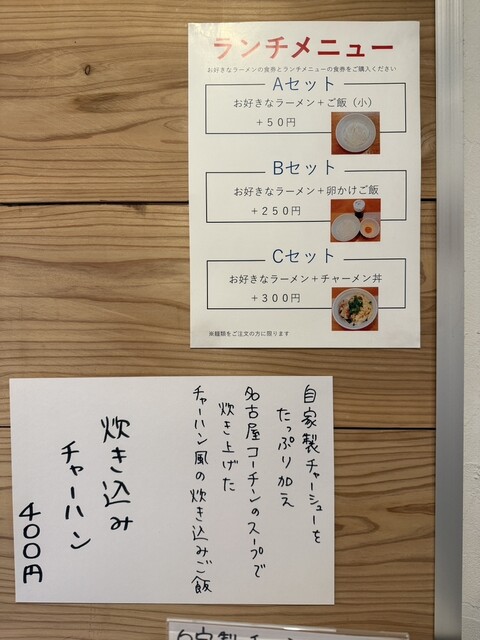 ランチメニュー
お好きなラーメンの食券とランチメニューの食券をご購入ください
Aセット
お好きなラーメン＋ご飯（小）
＋50円
Bセット
お好きなラーメン＋卵かけご飯
＋250円
Cセット
お好きなラーメン＋チャーメン丼
＋300円
※麺類をご注文の方に限ります
自家製チャーシューを
たっぷり加え
名古屋コーチンのスープで
炊き上げた
チャーハン風の炊き込みご飯
炊き込み
チャーハン
400円